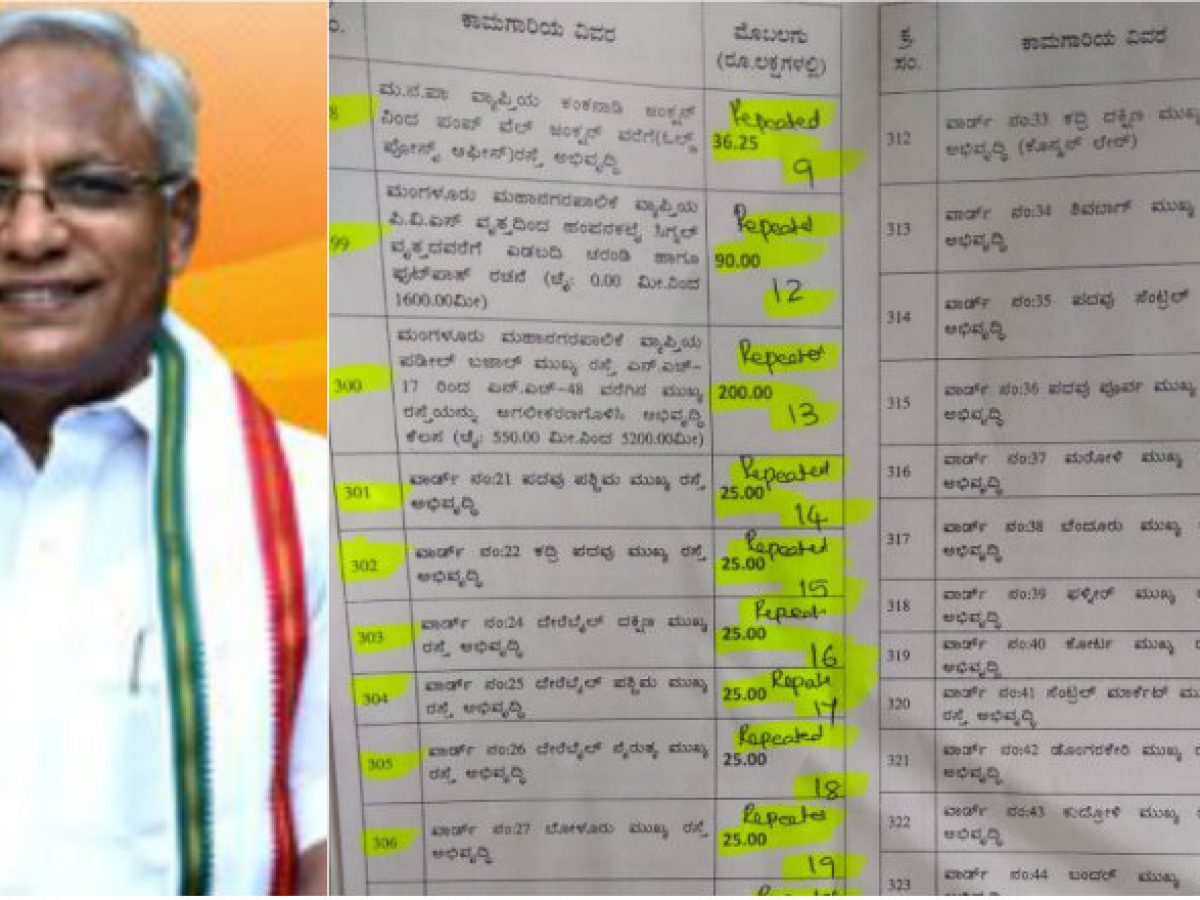 ಸಂ.
ಕಾಮಗಾರಿಯ ವಿವರ
ಮೊಬಲಗು
(ರೂ.ಲಕ್ಷಗಳಲ್ಲಿ)
8
ಮ.ನ.ಪಾ ವ್ಯಾಪ್ತಿಯ ಕಂಕನಾಡಿ ಜಂಕ್ಷನ್
ನಿಂದ ಪಂಪ್ ವೆಲ್ ಜಂಕ್ಷನ್ ವರೆಗೆ(ಓಲ್ಡ್
ಪೋಸ್ಟ್ ಆಫೀಸ್)ರಸ್ತೆ ಅಭಿವೃದ್ಧಿ
Repeated
36.25
9
99
ಮಂಗಳೂರು ಮಹಾನಗರಪಾಲಿಕೆ ವ್ಯಾಪ್ತಿಯ
ಪಿ.ವಿ.ಎಸ್ ವೃತ್ತದಿಂದ ಹಂಪನಕಟ್ಟೆ ಸಿಗ್ನಲ್
ವೃತ್ತದವರೆಗೆ ಎಡಬದಿ ಚರಂಡಿ ಹಾಗೂ
ಫುಟ್‌ಪಾತ್ ರಚನೆ (ಚೈ: 0.00 ಮೀ.ನಿಂದ
1600.00ಮೀ)
Repeated
90.00
12
300
ಮಂಗಳೂರು ಮಹಾನಗರಪಾಲಿಕೆ ವ್ಯಾಪ್ತಿಯ
ಪಡೀಲ್ ಬಜಾಲ್ ಮುಖ್ಯ ರಸ್ತೆ ಎನ್.ಎಚ್-
17 ರಿಂದ ಎನ್.ಎಚ್-48 ವರೆಗಿನ ಮುಖ್ಯ
ರಸ್ತೆಯನ್ನು ಅಗಲೀಕರಣಗೊಳಿಸಿ ಅಭಿವೃದ್ಧಿ
ಕೆಲಸ (ಚೈ: 550.00 ಮೀ.ನಿಂದ 5200.00ಮೀ)
Repeated
200.00
13
301
ವಾರ್ಡ್ ನಂ:21 ಪದವು ಪಶ್ಚಿಮ ಮುಖ್ಯ ರಸ್ತೆ
ಅಭಿವೃದ್ಧಿ
Repeated
25.00
14
302
ವಾರ್ಡ್ ನಂ:22 ಕದ್ರಿ ಪದವು ಮುಖ್ಯ ರಸ್ತೆ
ಅಭಿವೃದ್ಧಿ
Repeated
25.00
15
303
ವಾರ್ಡ್ ನಂ:24 ದೇರೆಬೈಲ್ ದಕ್ಷಿಣ ಮುಖ್ಯ
ರಸ್ತೆ ಅಭಿವೃದ್ಧಿ
25.00
16
304
ವಾರ್ಡ್ ನಂ:25 ದೇರೆಬೈಲ್ ಪಶ್ಚಿಮ ಮುಖ್ಯ
ರಸ್ತೆ ಅಭಿವೃದ್ಧಿ
25.00
17
305
ವಾರ್ಡ್ ನಂ:26 ದೇರೆಬೈಲ್ ನೈರುತ್ಯ ಮುಖ್ಯ
ರಸ್ತೆ ಅಭಿವೃದ್ಧಿ
Repeated
25.00
18
306
ವಾರ್ಡ್ ನಂ:27 ಬೋಳೂರು ಮುಖ್ಯ ರಸ್ತೆ
ಅಭಿವೃದ್ಧಿ
Repeated
25.00
19
ಕ್ರ.
ಸಂ.
ಕಾಮಗಾರಿಯ ವಿವರ
312
ವಾರ್ಡ್ ನಂ:33 ಕದ್ರಿ ದಕ್ಷಿಣ ಮುಖ್ಯ
ಅಭಿವೃದ್ಧಿ (ಕೊಸ್ಮಸ್ ಲೇನ್)
313
ವಾರ್ಡ್ ನಂ:34 ಶಿವಬಾಗ್ ಮುಖ್ಯ
ಅಭಿವೃದ್ಧಿ
314
ವಾರ್ಡ್ ನಂ:35 ಪದವು ಸೆಂಟ್ರಲ್
ಅಭಿವೃದ್ಧಿ
315
ವಾರ್ಡ್ ನಂ:36 ಪದವು ಪೂರ್ವ ಮುಖ್ಯ
ಅಭಿವೃದ್ಧಿ
316
ವಾರ್ಡ್ ನಂ:37 ಮರೋಳಿ ಮುಖ್ಯ
ಅಭಿವೃದ್ಧಿ
317
ವಾರ್ಡ್ ನಂ:38 ಬೆಂದೂರು ಮುಖ್ಯ
ಅಭಿವೃದ್ಧಿ
318
ವಾರ್ಡ್ ನಂ:39 ಫಳ್ನೀರ್ ಮುಖ್ಯ
ಅಭಿವೃದ್ಧಿ
319
ವಾರ್ಡ್ ನಂ:40 ಕೋರ್ಟ್ ಮುಖ್ಯ
ಅಭಿವೃದ್ಧಿ
320
ವಾರ್ಡ್ ನಂ:41 ಸೆಂಟ್ರಲ್ ಮಾರ್ಕೆಟ್
ರಸ್ತೆ ಅಭಿವೃದ್ಧಿ
321
ವಾರ್ಡ್ ನಂ:42 ಡೊಂಗರಕೇರಿ ಮುಖ್ಯ
ಅಭಿವೃದ್ಧಿ
322
ವಾರ್ಡ್ ನಂ:43 ಕುದ್ರೋಳಿ ಮುಖ್ಯ
ಅಭಿವೃದ್ಧಿ
323
ವಾರ್ಡ್ ನಂ:44 ಬಂದರ್ ಮುಖ್ಯ